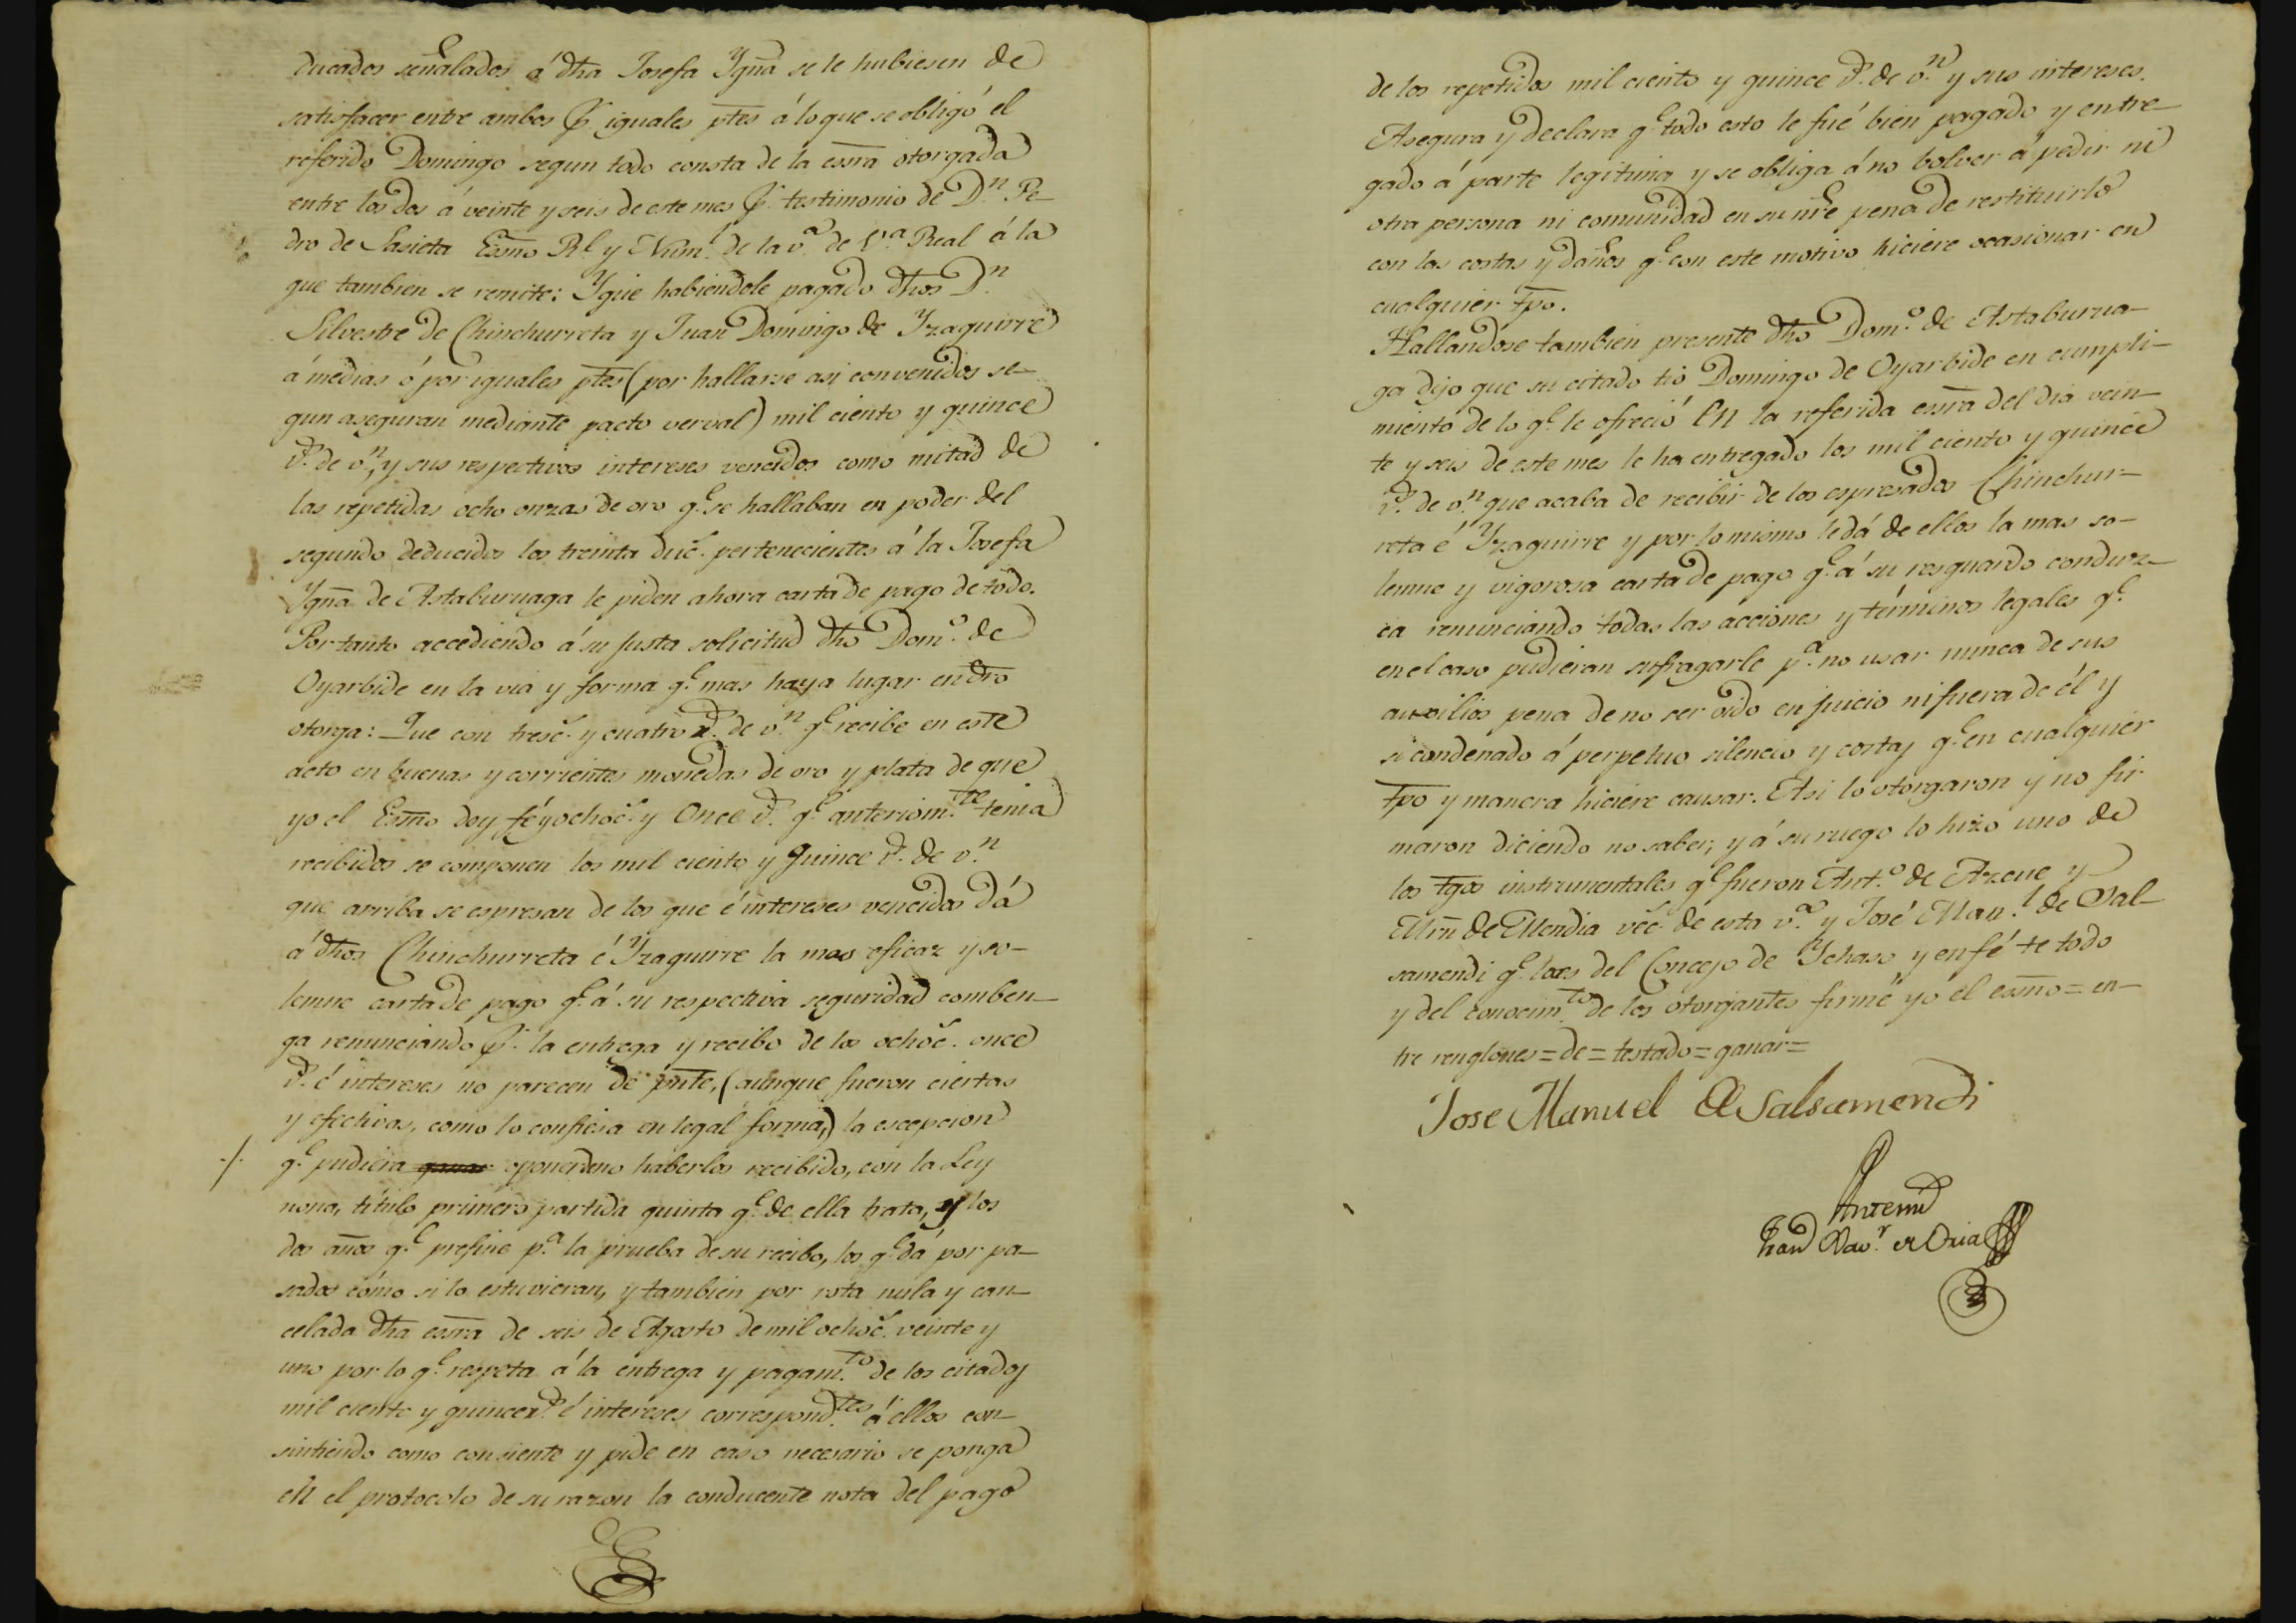 ducados señalados á dha Josefa Ygna se le hubiesen de
satisfacer entre ambos p.r iguales ptes á lo que se obligó el
referido Domingo segun todo consta de la essra otorgada
entre los dos á veinte y seis de este mes p.r testimonio de D.n Pe-
dro de Lasieta Essno R.l y Num.l de la v.a de V.a Real á la
que tambien se remite: Y que habiendole pagado dhos D.n
Silvestre de Chinchurreta y Juan Domingo de Yzaguirre
á medias ó por iguales ptes (por hallarse asi convenidos se-
gun aseguran mediante pacto verval) mil ciento y quince
r.s de v.n, y sus respectivos intereses vencidos como mitad de
las repetidas ocho onzas de oro q.e se hallaban en poder del
segundo deducidos los treinta duc.s pertenecientes á la Josefa
Ygna de Astaburuaga le piden ahora carta de pago de todo.
Por tanto accediendo á su justa solicitud dho Dom.o de
Oyarbide en la via y forma q.e mas haya lugar en dro
otorga: Que con tresc.s y cuatro r.s de v.n q.e recibe en este
acto en buenas y corrientes monedas de oro y plata de que
yo el Essno doy fé y ochoc.s y Once r.s q.e anteriorm.te tenia
recibidos se componen los mil ciento y quince r.s de v.n
que arriba se espresan de los que é intereses vencidos dá
á dhos Chinchurreta é Yzaguirre la mas eficaz y so-
lemne carta de pago q.e á su respectiva seguridad comben-
ga renunciando p.r la entrega y recibo de los ochoc.s once
r.s é intereses no parecen de pnte, (aunque fueron ciertas
y efectivas, como lo confiesa en legal forma,) la escepcion
./. q.e pudiera ganar oponer de no haberlos recibido, con la Ley
nona, título primero partida quinta q.e de ella trata, y los
dos años q.e prefine p.a la prueba de su recibo, los q.e dá por pa-
sados como si lo estuvieran, y tambien por rota nula y can-
celada dha essra de seis de Agosto de mil ochoc.s veinte y
uno por lo q.e respeta á la entrega y pagam.to de los citados
mil ciento y quince r.s é intereses correspond.tes á ellos con-
sintiendo como consiente y pide en caso necesario se ponga
en el protocolo de su razon la conducente nota del pago
de los repetidos mil ciento y quince r.s de v.n y sus intereses.
Asegura y declara q.e todo esto le fué bien pagado y entre-
gado á parte legitima y se obliga á no bolver á pedir ni
otra persona ni comunidad en su nre pena de restituirlo
con las costas y daños q.e con este motivo hiciere ocasionar en
cualquier tpo.
Hallandose tambien presente dho Dom.o de Astaburua-
ga dijo que su citado tio Domingo de Oyarbide en cumpli-
miento de lo q.e le ofreció en la referida essra del dia vein-
te y seis de este mes le ha entregado los mil ciento y quince
r.s de v.n que acaba de recibir de los espresados Chinchur-
reta é Yzaguirre y por lo mismo le dá de ellos la mas so-
lemne y vigorosa carta de pago q.e á su resguardo conduz-
ca renunciando todas las acciones y términos legales q.e
en el caso pudieran sufragarle p.a no usar nunca de sus
auxilios pena de no ser oido en juicio ni fuera de él y
si condenado á perpetuo silencio y costas q.e en cualquier
tpo y manera hiciere causar. Asi lo otorgaron y no fir-
maron diciendo no saber, y á su ruego lo hizo uno de
los tgos instrumentales q.e fueron Ant.o de Azcue y
Mrn de Mendia vec.s de esta v.a y José Man.l de Sal-
samendi q.e lo es del Concejo de Ychaso y en fé de todo
y del conocim.to de los otorgantes firmé yo el essno = en-
tre renglones = de = testado = ganar =
Jose Manuel de Salsamendi
Antemi